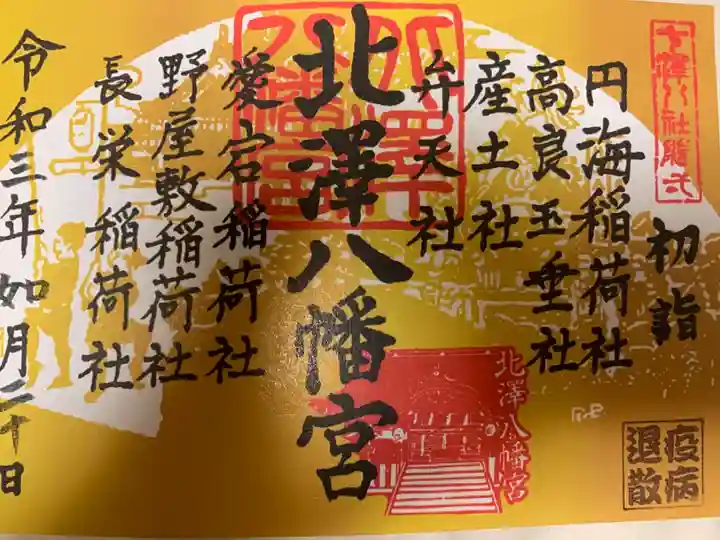 七澤八社随弌
初詣
円海稲荷社
高良玉垂社
産土社
弁天社
北澤八幡宮
北澤八幡宮
愛宕稲荷社
野屋敷稲荷社
長栄稲荷社
令和三年如月二十日
北澤八幡宮
疫病
退散